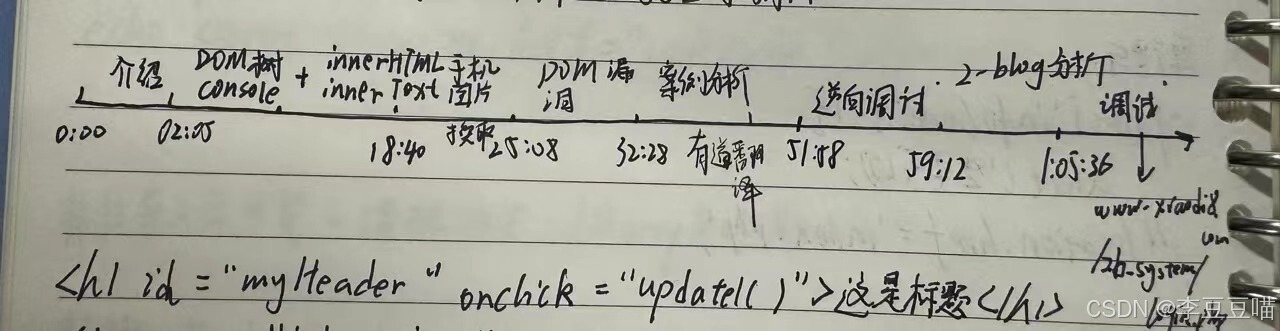 介绍 DOM树 + innerHTML 手机 DOM 漏 案例分析 逆向调试 2-blog分析
console innerText 图片 洞 调试
0:00 02:05 18:40 换取 25:08 32:28 有道翻译 51:58 59:12 1:05:36
www.
com
/2b-system/
<h1 id = "myHeader" onclick = "update1()">这是标题</h1>
CSDN @李豆豆喵